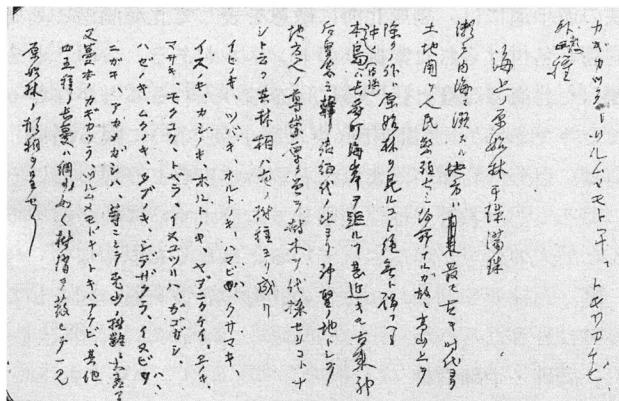 カギカツラトツルムメモドキ、トキワアケビ、
外四種
海上ノ原始林干珠満珠
瀬戸内海ニ スル地方ハ 最モ古キ時代ヨリ
土地開ケ人民繁殖セシ ナルカ故ニ高山上ヲ
除クノ外原始林ヲ見ルコト絶無ト
本島ハ長府町海岸ヲ距ル 甚近キモ古来神
三韓征伐ノ比ヨリ神聖ノ地トシテ
地方人ノ尊崇厚ク曽テ樹木ヲ伐採セシコトナ
シト云フ其林相ハ左ノ樹種ヨリ成リ
ツバキ、ホルトノキ、ハマビワ、クサマキ、
イスノキ、カシノキ、ホルトノキ、ヤブニクケイ、エノキ、
マサキ、モクコク、トベラ、イヌユヅリハ、カゴガシ、
ハゼノキ、ムクノキ、タブノキ、シデザクラ、イヌビワ、
ニガキ、アカガシハ、等ニシテ全山ノ樹齢
又蔓本カギカヅラ、ツルムメモドキ、トキハアケビ、其他
四五種ノ長蔓ハ網ノ如ク樹 ヲ蔽ヒテ一見
原始林ノ形相ヲ呈セリ